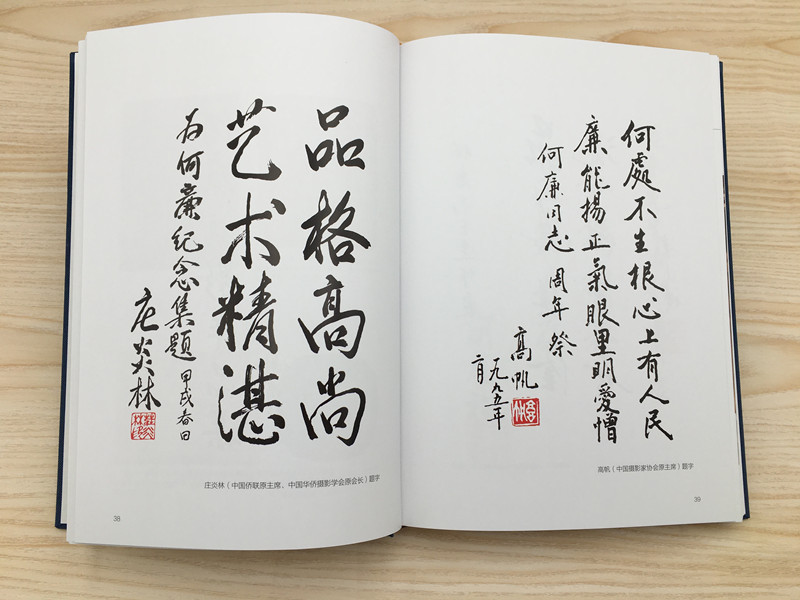 品格高尚
艺术精湛
为何廉纪念集题 甲戌春日
庄炎林
庄炎林（中国侨联原主席，中国华侨摄影学会原会长）题字
38
何處不生根心上有人民
廉能揚正氣眼里明愛憎
何廉同志 周年祭
高帆
一九九五年
二月
高帆（中国摄影家协会原主席）题字
39